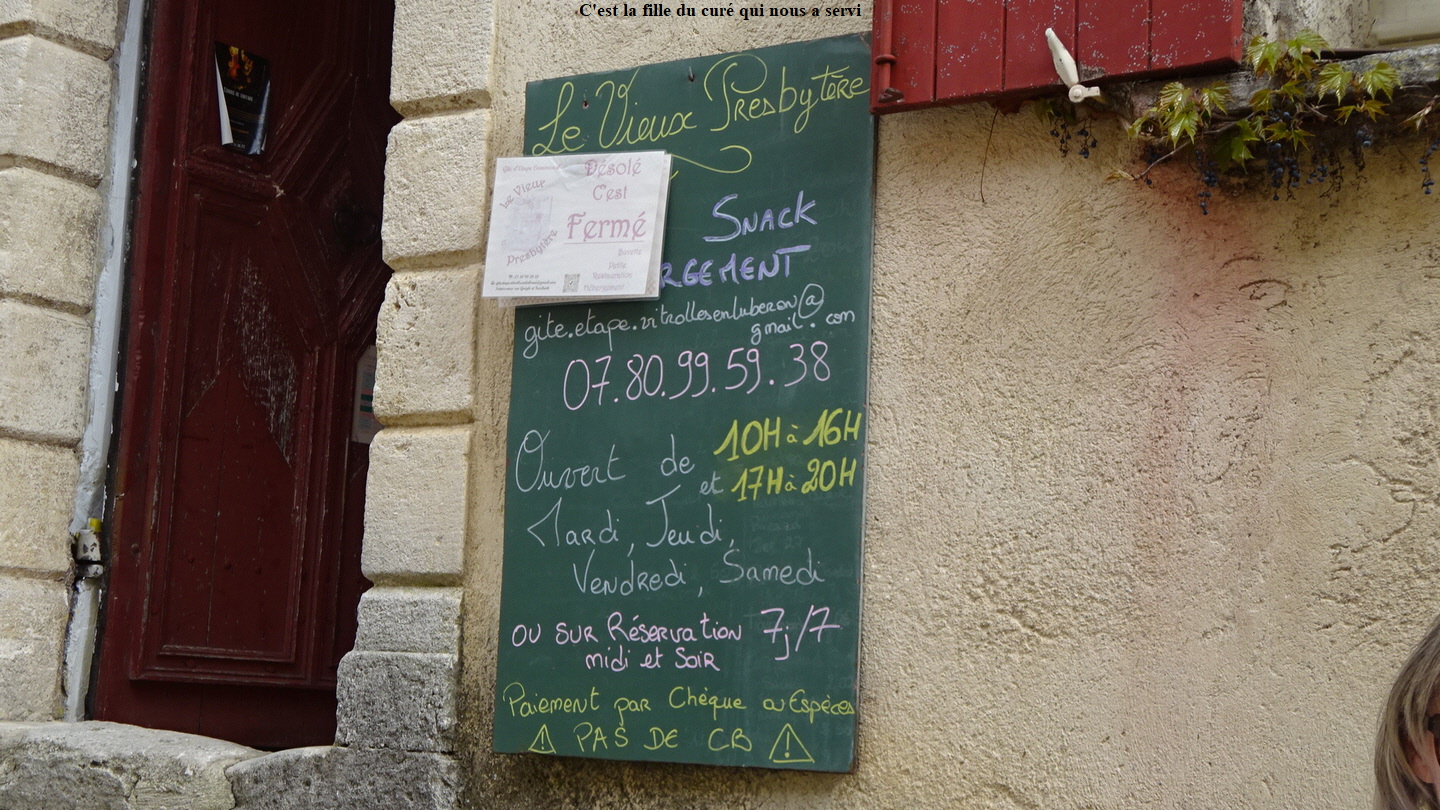 C'est la fille du curé qui nous a servi
Le Vieux Presbytère
Désolé
C'est
Fermé
Le Vieux
Presbytère
Buvette
Petite
Restauration
Hébergement
SNACK
RGEMENT
gite.etape.vitrollesenluberon@
gmail.com
07.80.99.59.38
Ouvert de 10H à 16H
et 17H à 20H
Mardi, Jeudi,
Vendredi, Samedi
OU SUR Réservation 7j/7
midi et Soir
Paiement par Chèque ou Espèces
PAS DE CB